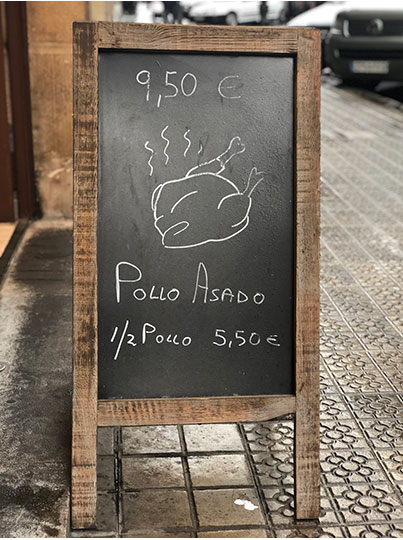 9,50 €
POLLO ASADO
1/2 POLLO 5,50€